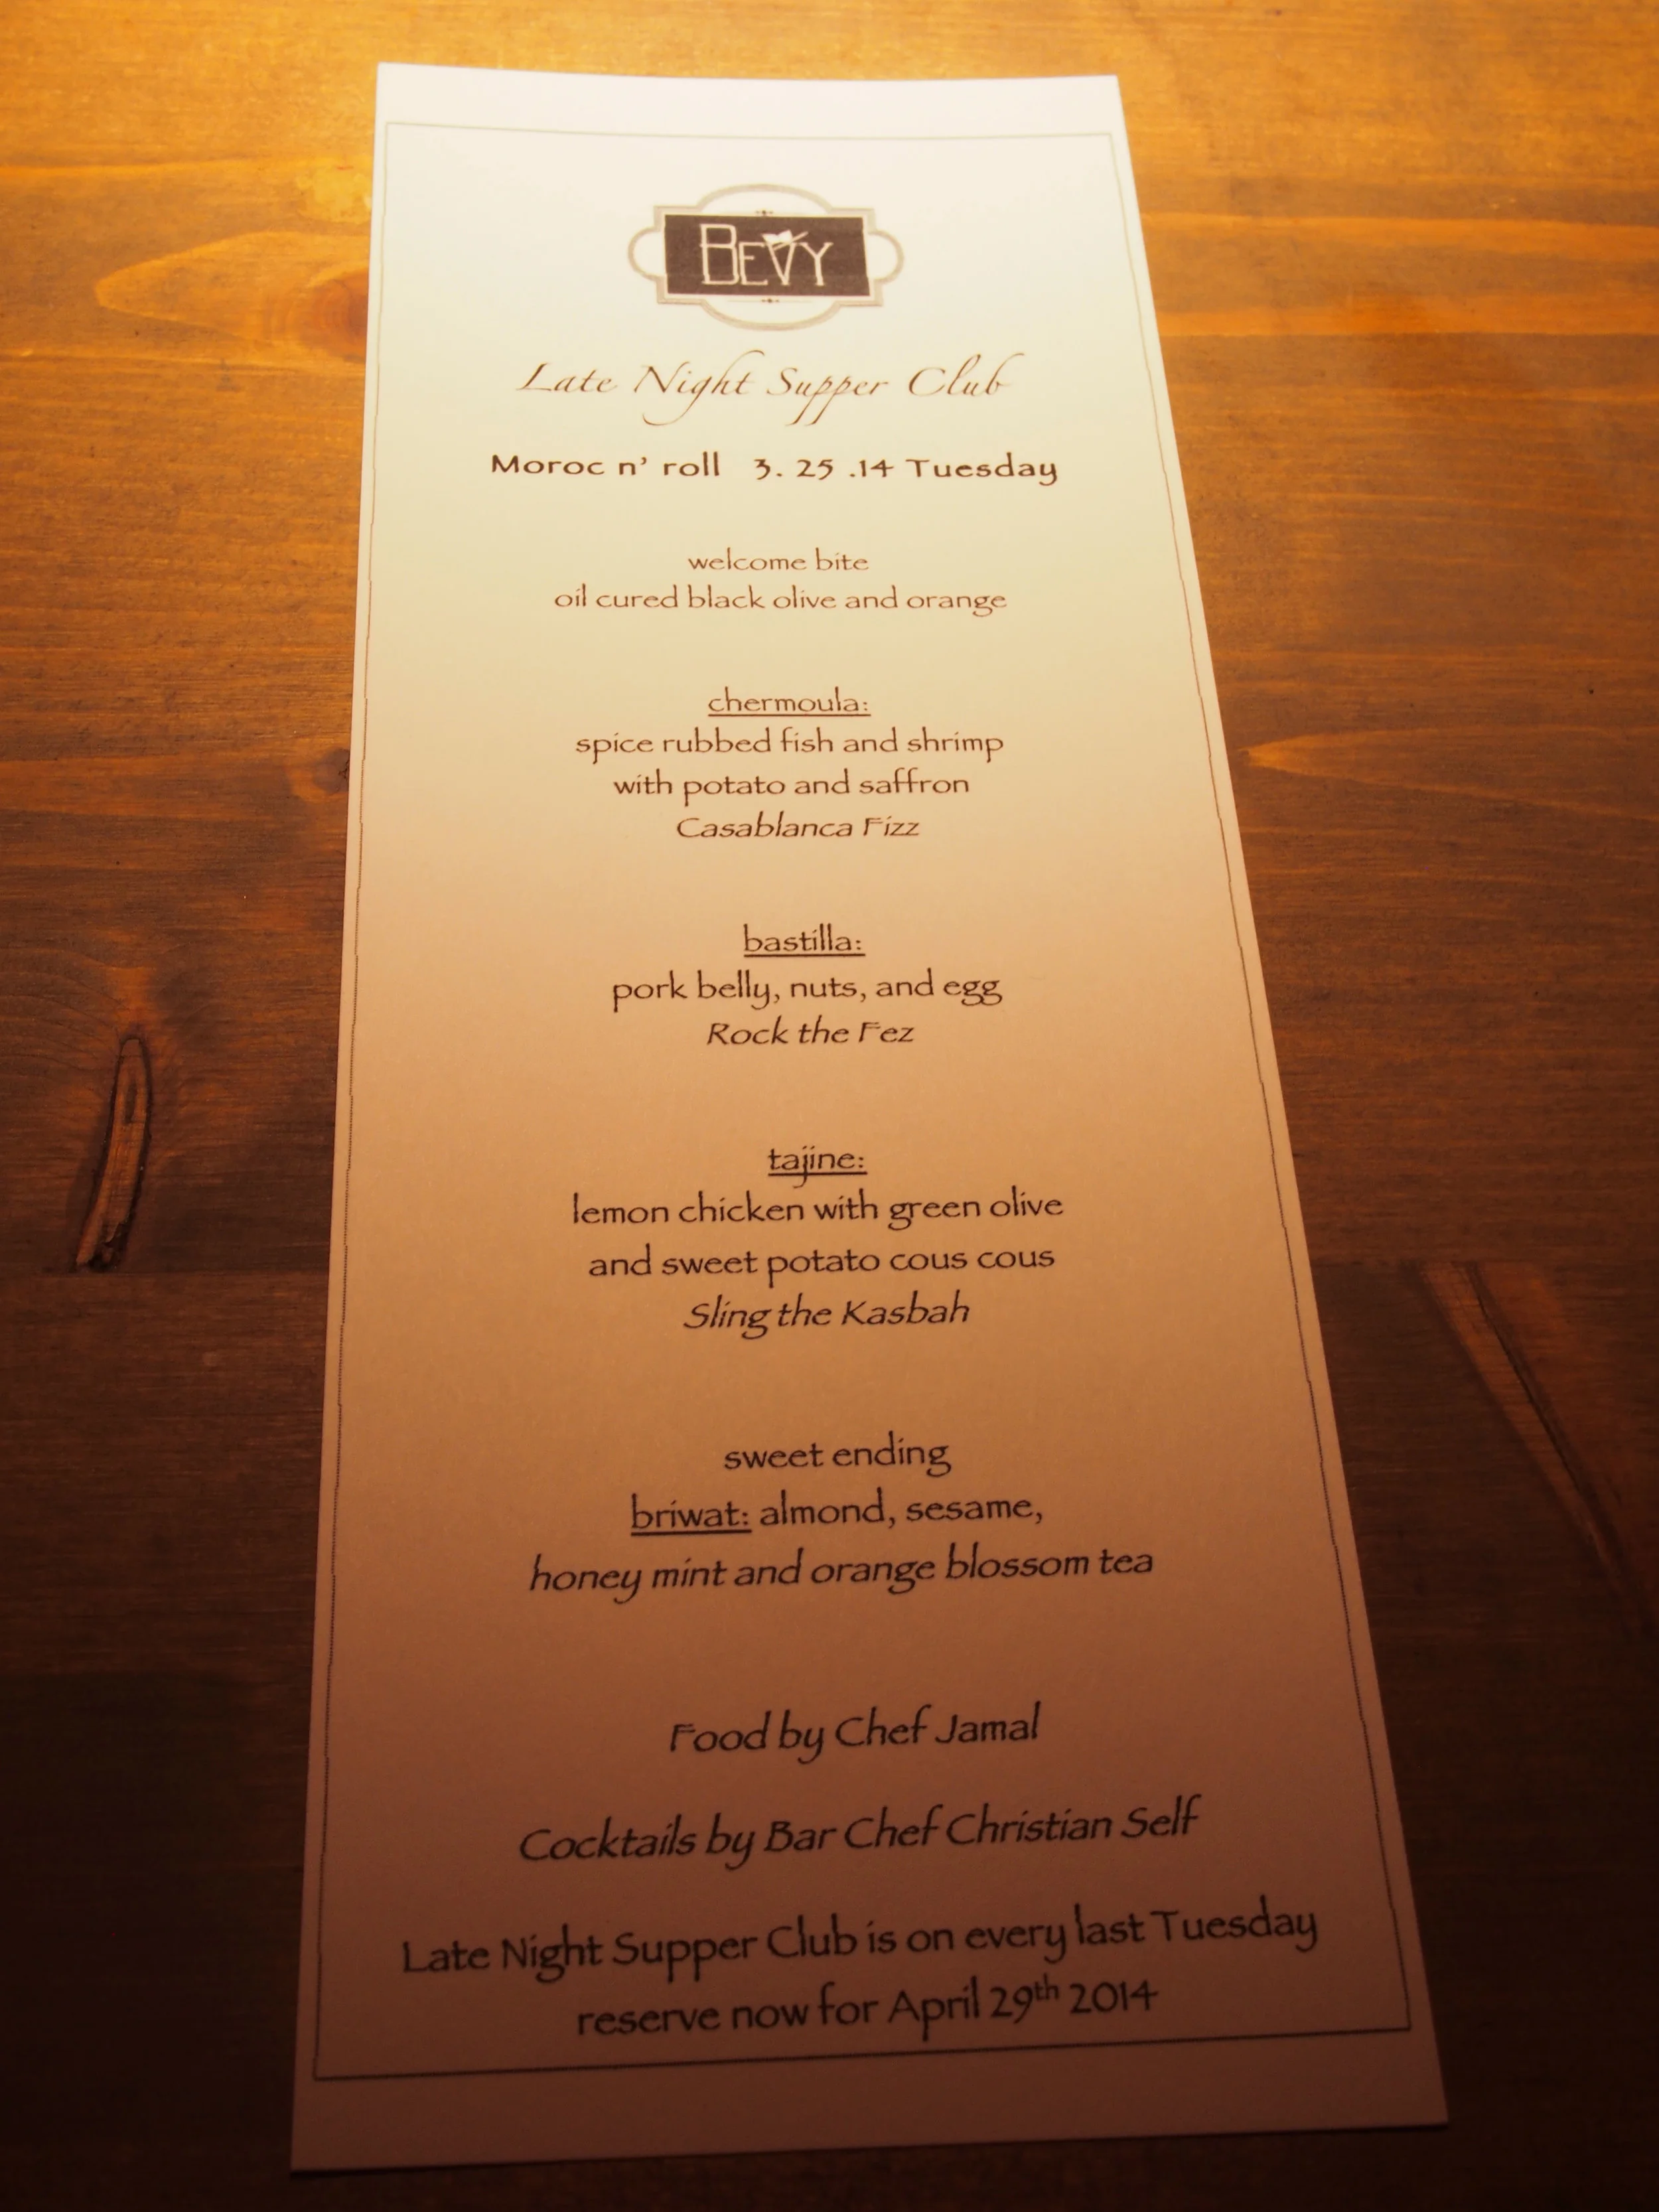 BEVY
Late Night Supper Club
Moroc n' roll 3. 25 .14 Tuesday
welcome bite
oil cured black olive and orange
chermoula:
spice rubbed fish and shrimp
with potato and saffron
Casablanca Fizz
bastilla:
pork belly, nuts, and egg
Rock the Fez
tajine:
lemon chicken with green olive
and sweet potato cous cous
Sling the Kasbah
sweet ending
briwat: almond, sesame,
honey mint and orange blossom tea
Food by Chef Jamal
Cocktails by Bar Chef Christian Self
Late Night Supper Club is on every last Tuesday
reserve now for April 29th 2014